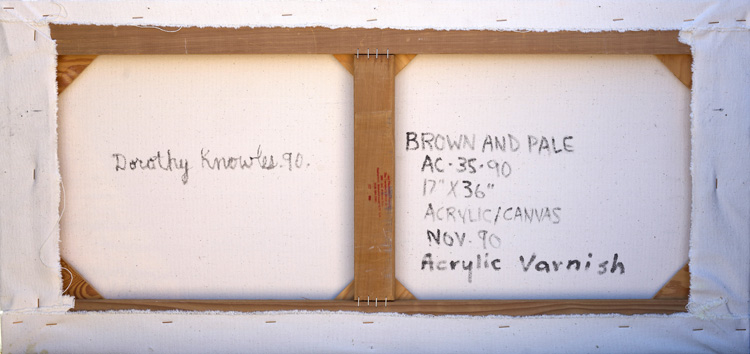 Dorothy Knowles.90.
BROWN AND PALE
AC-35-90
17" X 36"
ACRYLIC/CANVAS
NOV. 90
Acrylic Varnish